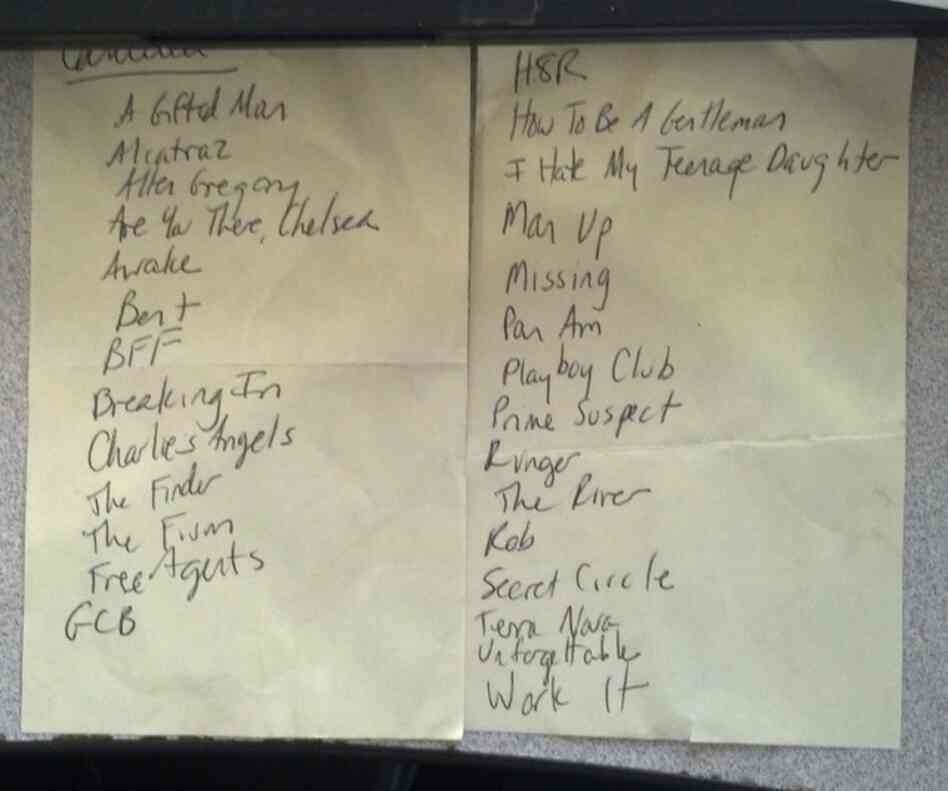 A Gifted Man
Alcatraz
Allen Gregory
Are You There, Chelsea
Awake
Bent
BFF
Breaking In
Charlie's Angels
The Finder
The Firm
Free Agents
GCB
H8R
How To Be A Gentleman
I Hate My Teenage Daughter
Man Up
Missing
Pan Am
Playboy Club
Prime Suspect
Ringer
The River
Rob
Secret Circle
Terra Nova
Unforgettable
Work It